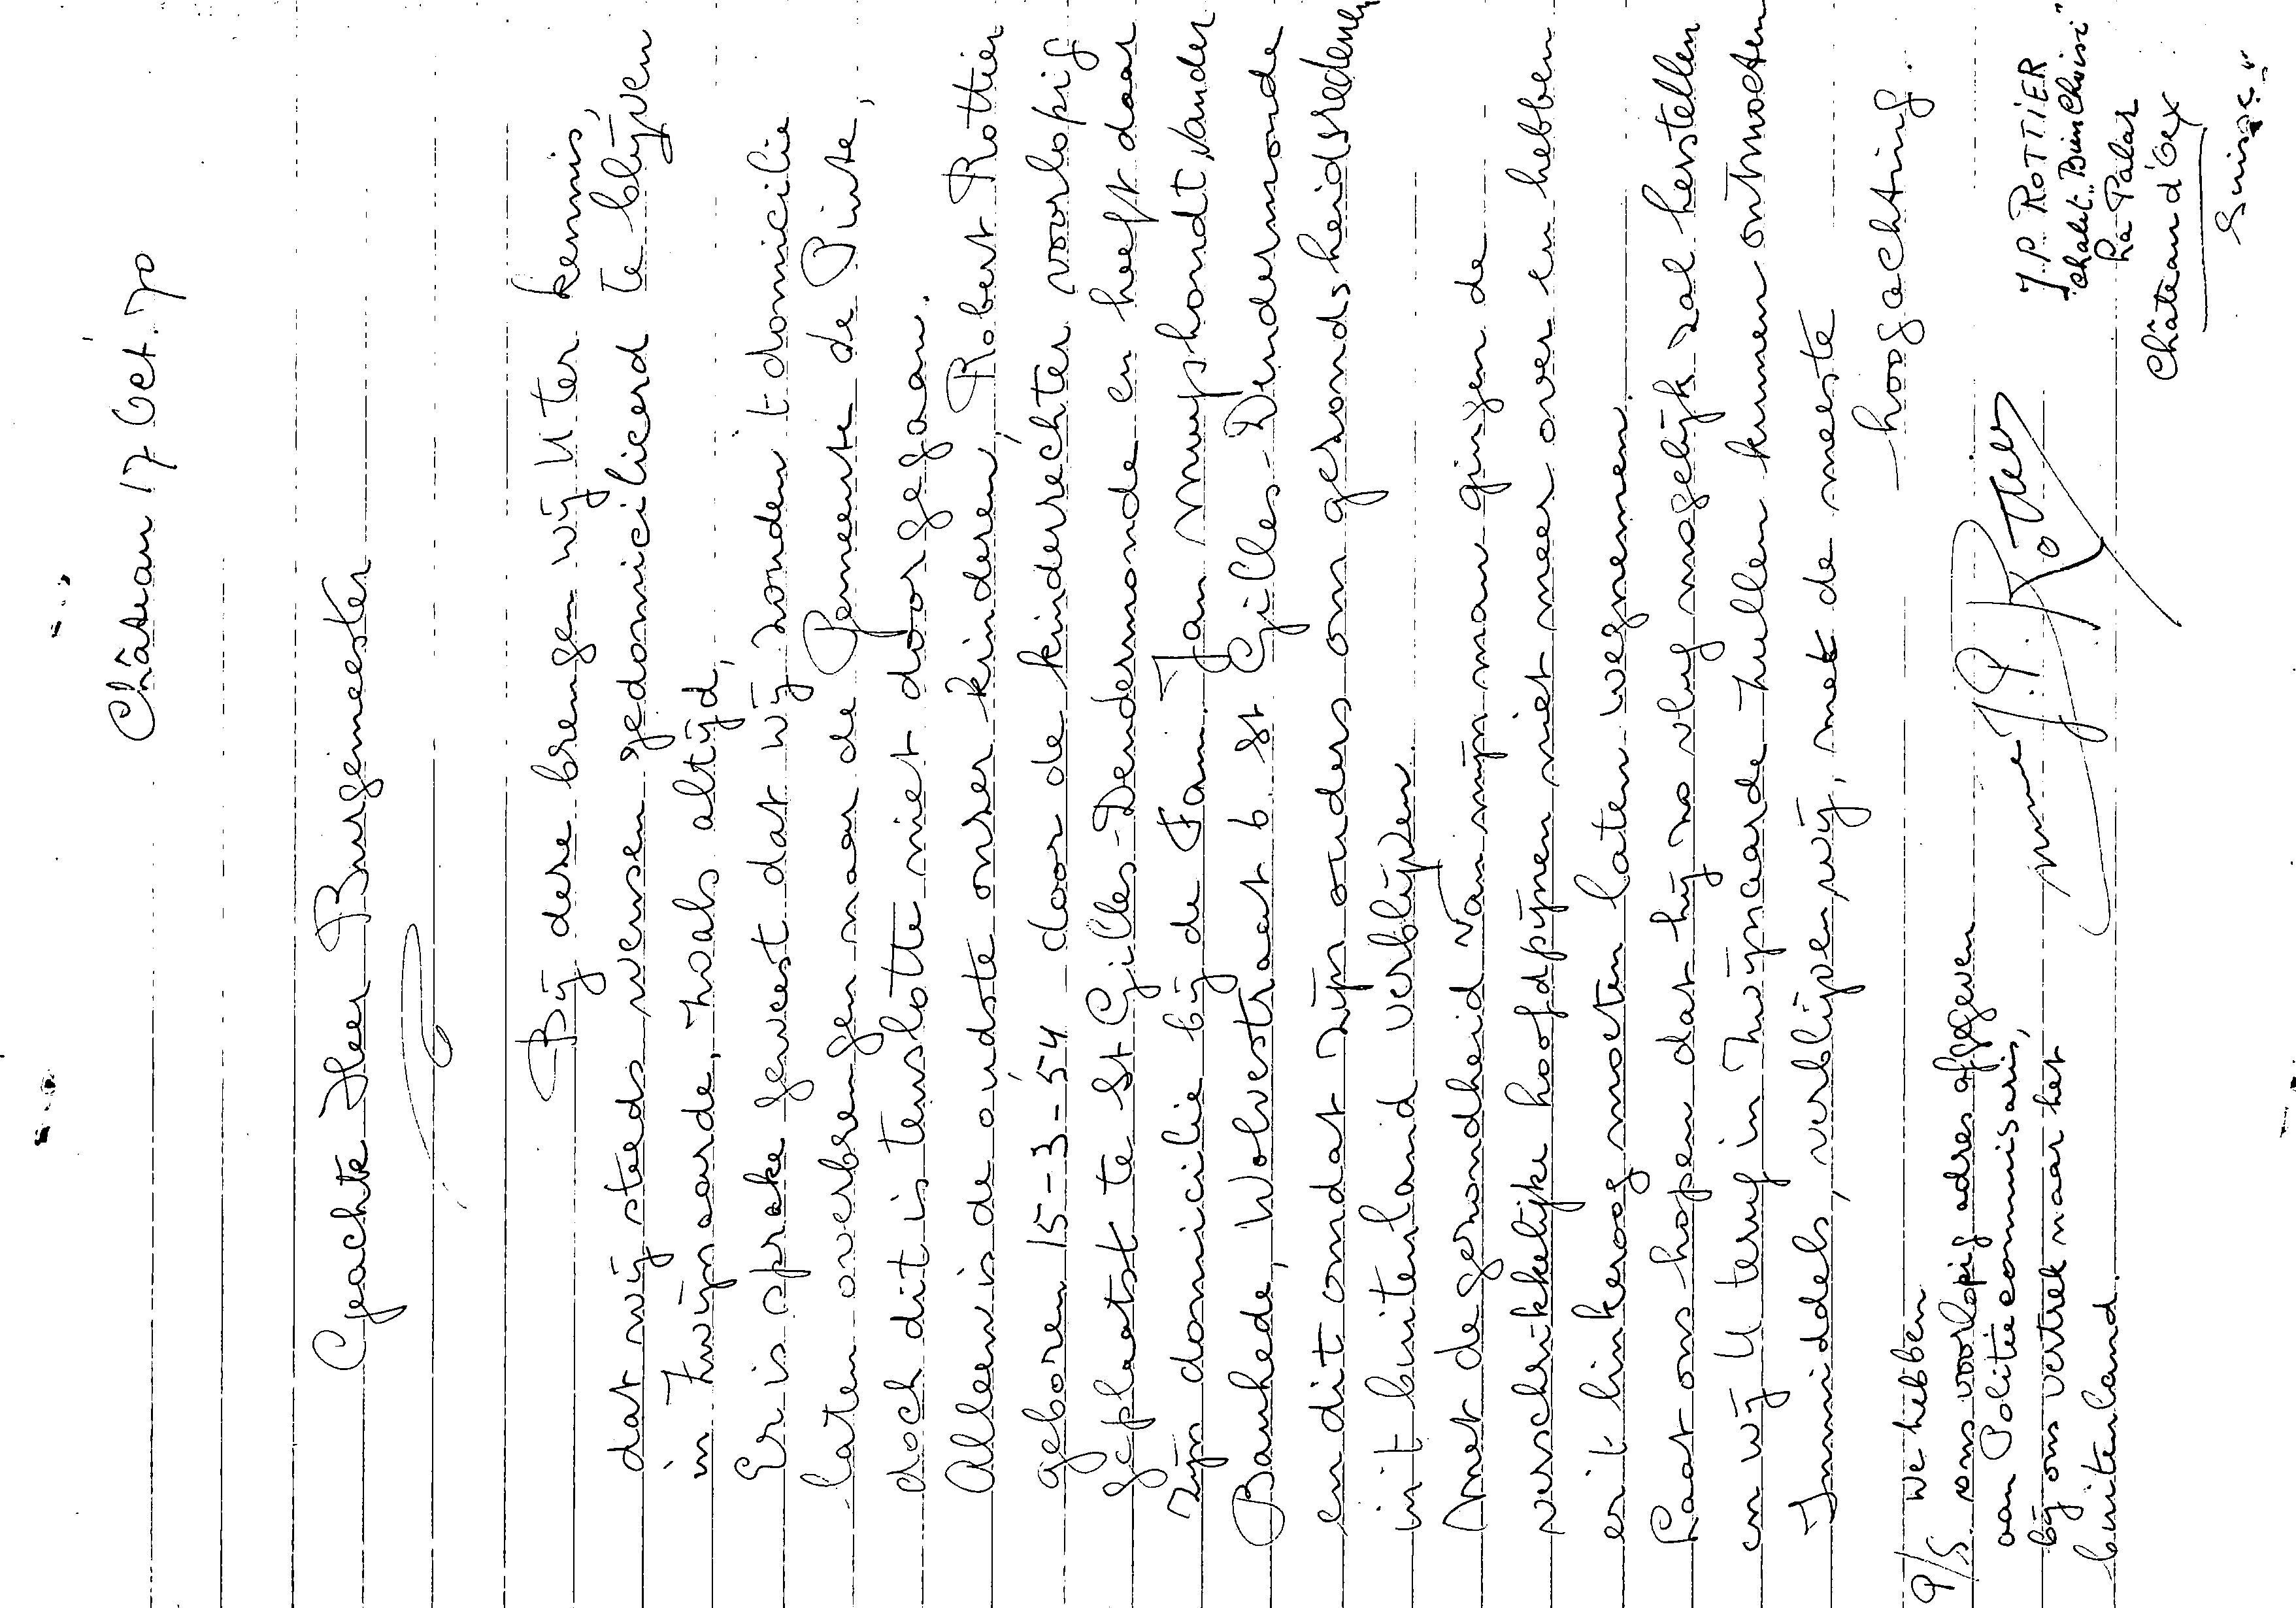 Château 17 Oct. 70
Geachte Heer Burgemeester
Bij deze brengen wij U ter kennis,
dat wij steeds wensen gedomicilieerd te blijven
in Zwijnaarde, zoals altijd,
Er is sprake geweest dat wij zouden 't domicilie
laten overbrengen naar de Gemeente de Pinte,
doch dit is tenslotte niet doorgegaan.
Alleen is de oudste onzer kinderen, Robert Rottier
geboren 15-3-54 door de kinderrechter voorlopig
geplaatst te St Gilles-Dendermonde en heeft daar
zijn domicilie bij de Fam. Jan Muyshondt, Vander
Banhede, Wolvestraat 6 St Gilles-Dendermonde
en dit omdat zijn ouders om gezondsheidsredenen
in 't buitenland verblijven.
Met de gezondheid van mijn man gingen de
verschrikkelijke hoofdpijnen niet meer over en hebben
er 't linkeroog moeten laten wegnemen.
Laat ons hopen dat hij zo vlug mogelijk zal herstellen
en wij U terug in Zwijnaarde zullen kunnen ontmoeten
Inmiddels, verblijven wij, met de meeste
hoogachting.
P/S. We hebben
ons voorlopig adres afgegeven
aan Politiecommisaris,
bij ons vertrek naar het
buitenland.
me J.P. Rottier
J.P. ROTTIER
"chalet "
La Palaz
Château d'Oex
Suisse